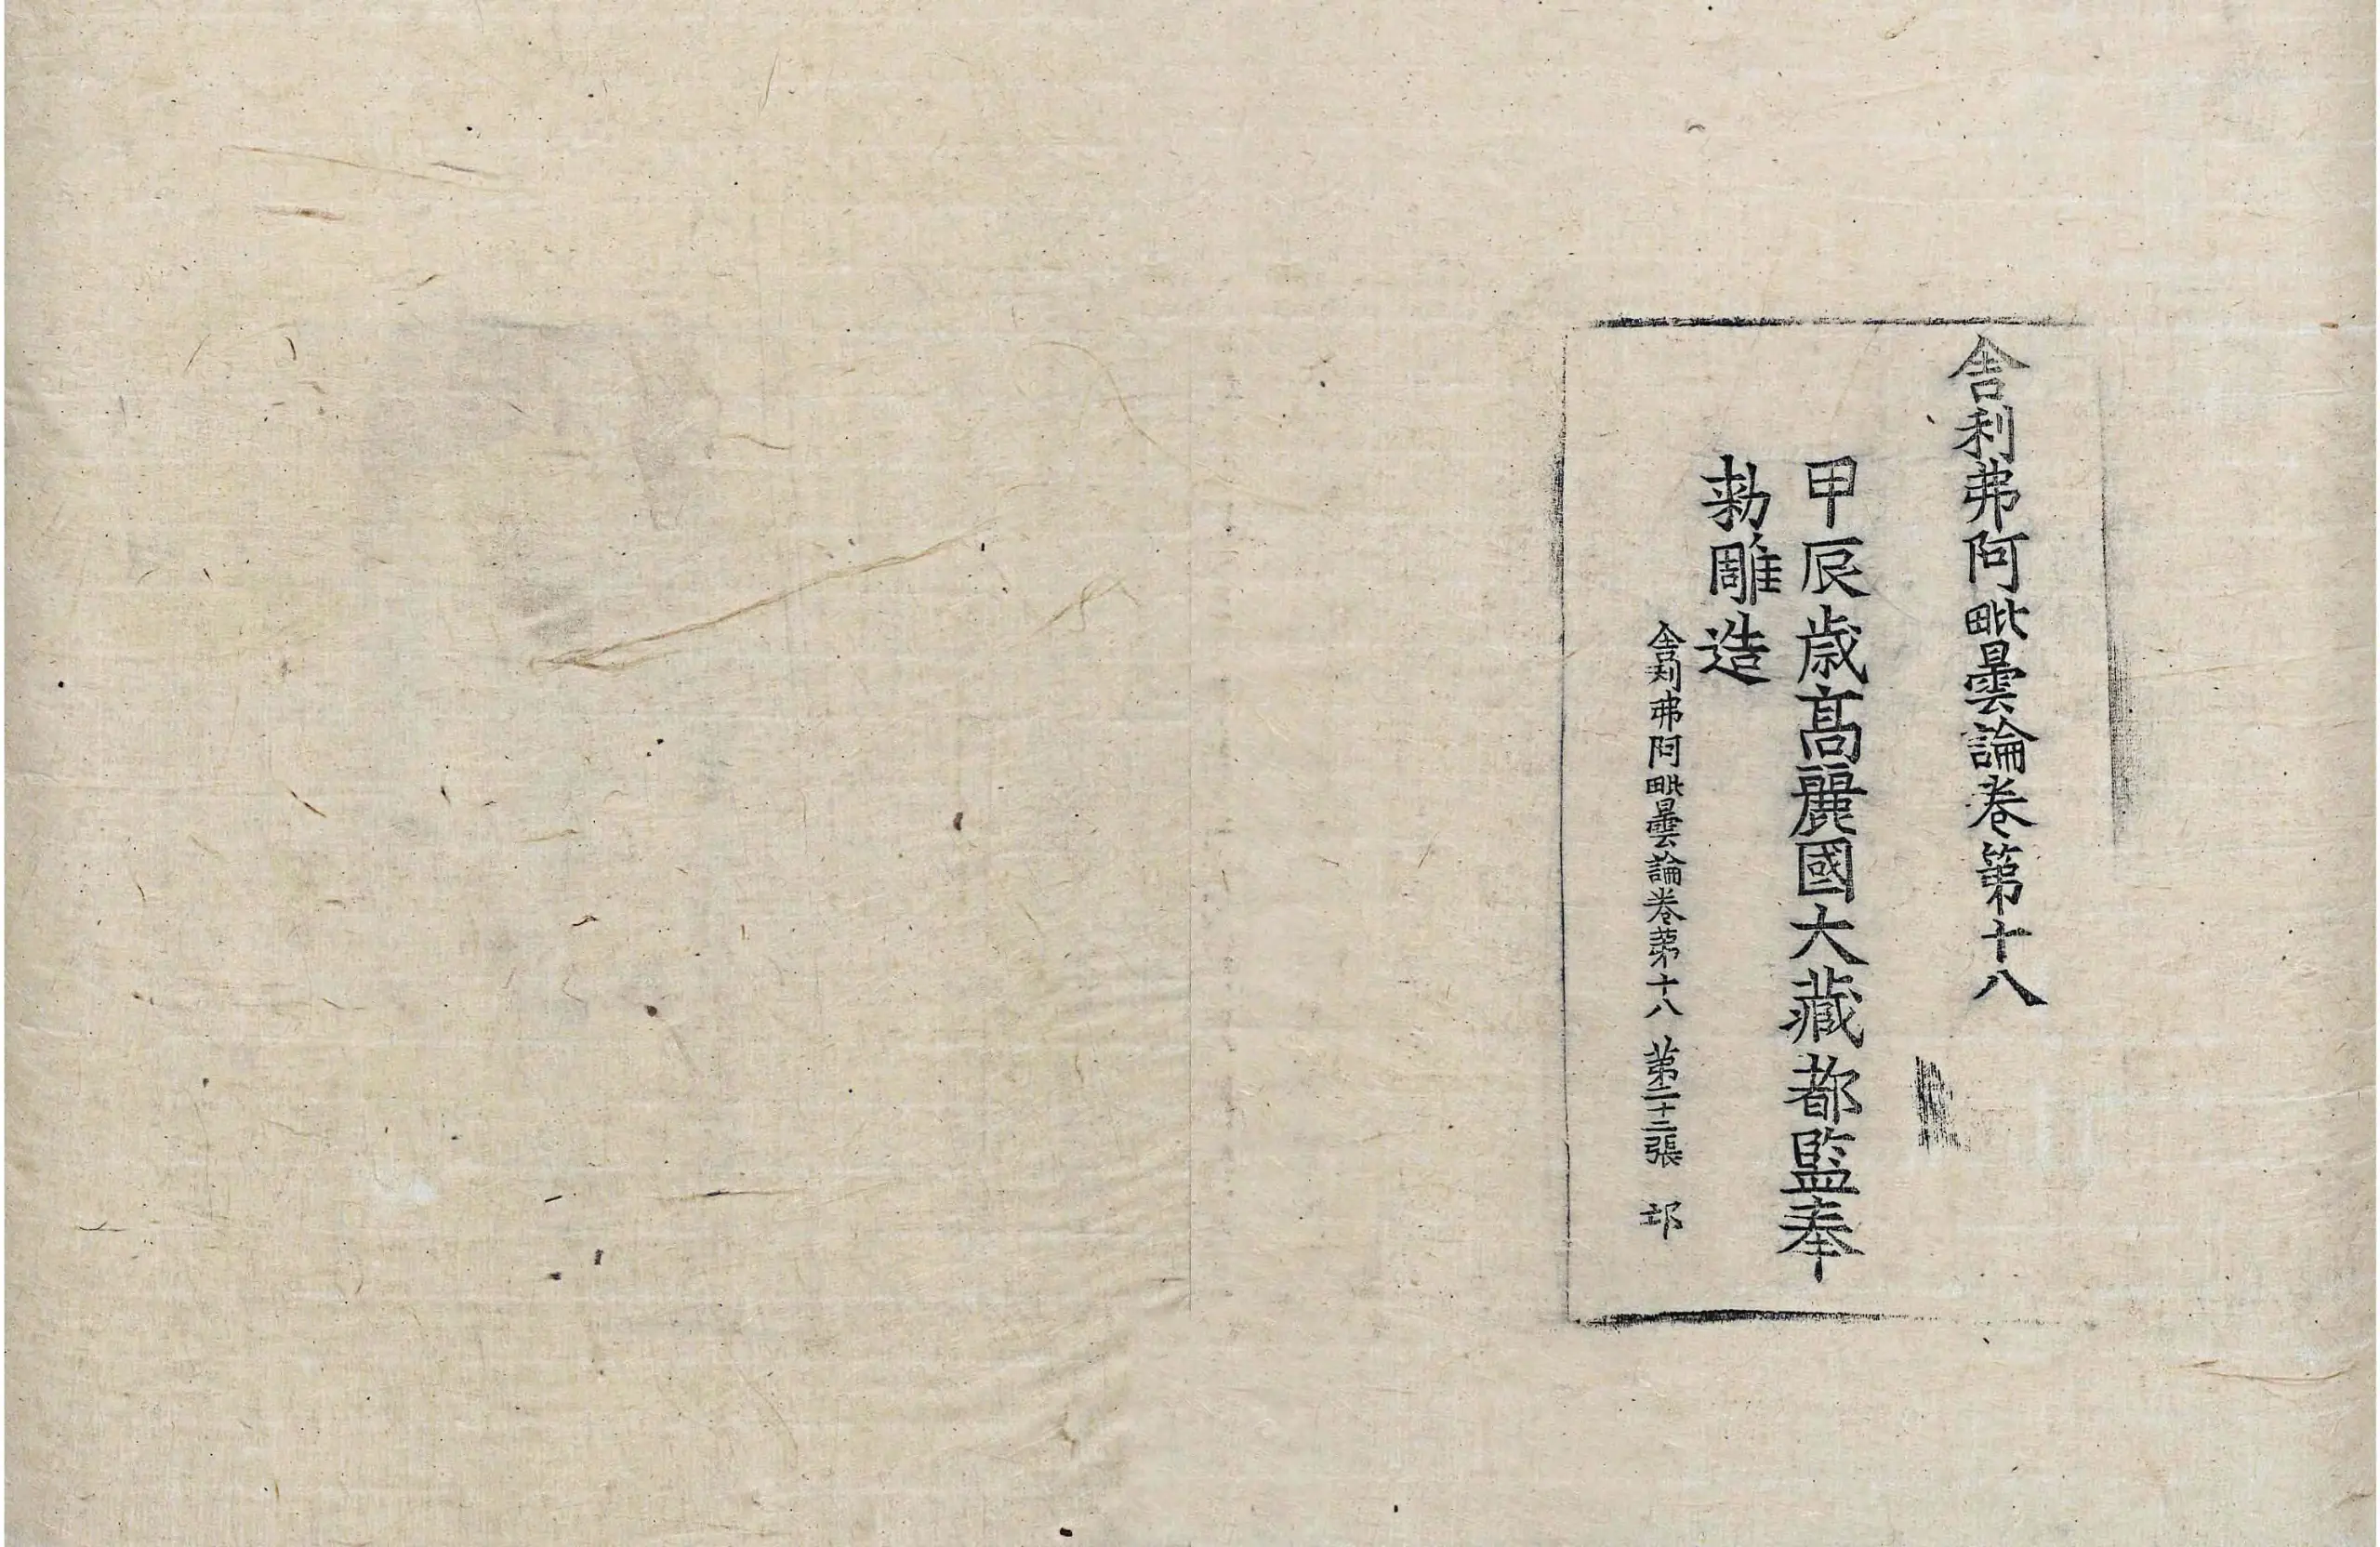 舎利弗阿毗曇論卷第十八
甲辰歳髙麗國大藏都監奉
勅雕造
舎利弗阿毗曇論卷苐十八 苐二十二張